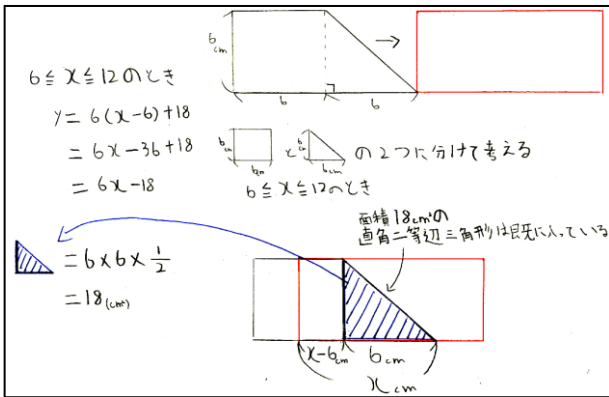 6cm
6
6
6≦x≦12のとき
y=6(x-6)+18
=6x-36+18
=6x-18
6cm
6cm
と
6cm
6cm
の2つに分けて考える
6≦x≦12のとき
面積18cm²の
直角二等辺三角形は既に入っている
=6×6×1/2
=18(cm²)
x-6cm
6cm
xcm